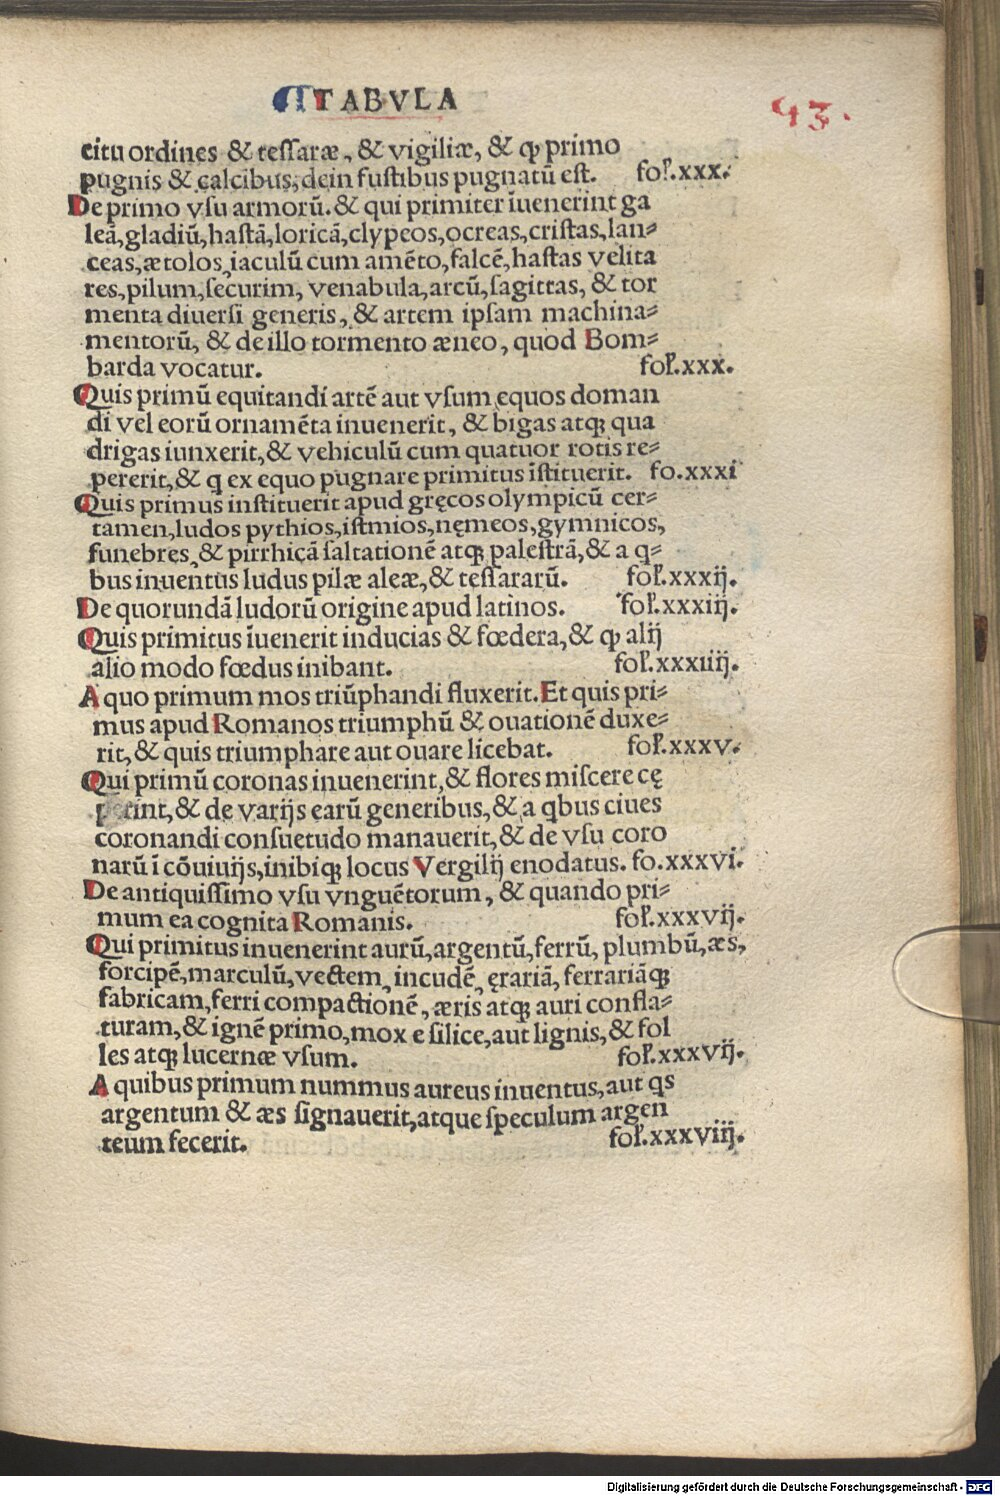 TABVLA
43.
citu ordines & tessaræ, & vigiliæ, & ꝙ primo
pugnis & calcibus, dein fustibus pugnatū est. fol.xxx.
De primo vsu armorū. & qui primiter īuenerint ga
leā, gladiū, hastā, loricā, clypeos, ocreas, cristas, lan-
ceas, ætolos iaculū cum amēto, falcē, hastas velita
res, pilum, securim, venabula, arcū, sagittas, & tor
menta diuersi generis, & artem ipsam machina-
mentorū, & de illo tormento æneo, quod Bom-
barda vocatur. fol.xxx.
Quis primū equitandi artē aut vsum equos doman
di vel eorū ornamēta inuenerit, & bigas atqꝫ qua
drigas iunxerit, & vehiculū cum quatuor rotis re-
pererit, & q ex equo pugnare primitus īstituerit. fo.xxxi
Quis primus instituerit apud gręcos olympicū cer-
tamen, ludos pythios, istmios, nęmeos, gymnicos,
funebres, & pirrhicā saltationē atqꝫ palestrā, & a q-
bus inuentus ludus pilæ aleæ, & tessararū. fol.xxxij.
De quorundā ludorū origine apud latinos. fol.xxxiij.
Quis primitus īuenerit inducias & fœdera, & ꝙ alij
alio modo fœdus inibant. fol.xxxiiij.
A quo primum mos triūphandi fluxerit. Et quis pri-
mus apud Romanos triumphū & ouationē duxe-
rit, & quis triumphare aut ouare licebat. fol.xxxv.
Qui primū coronas inuenerint, & flores miscere cę
perint, & de varijs earū generibus, & a qbus ciues
coronandi consuetudo manauerit, & de vsu coro
narū ī cōuiuijs, inibiqꝫ locus Vergilij enodatus. fo.xxxvi.
De antiquissimo vsu vnguētorum, & quando pri-
mum ea cognita Romanis. fol.xxxvij.
Qui primitus inuenerint aurū, argentū, ferrū, plumbū, æs,
forcipē, marculū, vectem, incudē, ęrariā, ferrariāqꝫ
fabricam, ferri compactionē, æris atqꝫ auri confla-
turam, & ignē primo, mox e silice, aut lignis, & fol
les atqꝫ lucernæ vsum. fol.xxxvij.
A quibus primum nummus aureus inuentus, aut qs
argentum & æs signauerit, atque speculum argen
teum fecerit. fol.xxxviij.
Digitalisierung gefördert durch die Deutsche Forschungsgemeinschaft - DFG